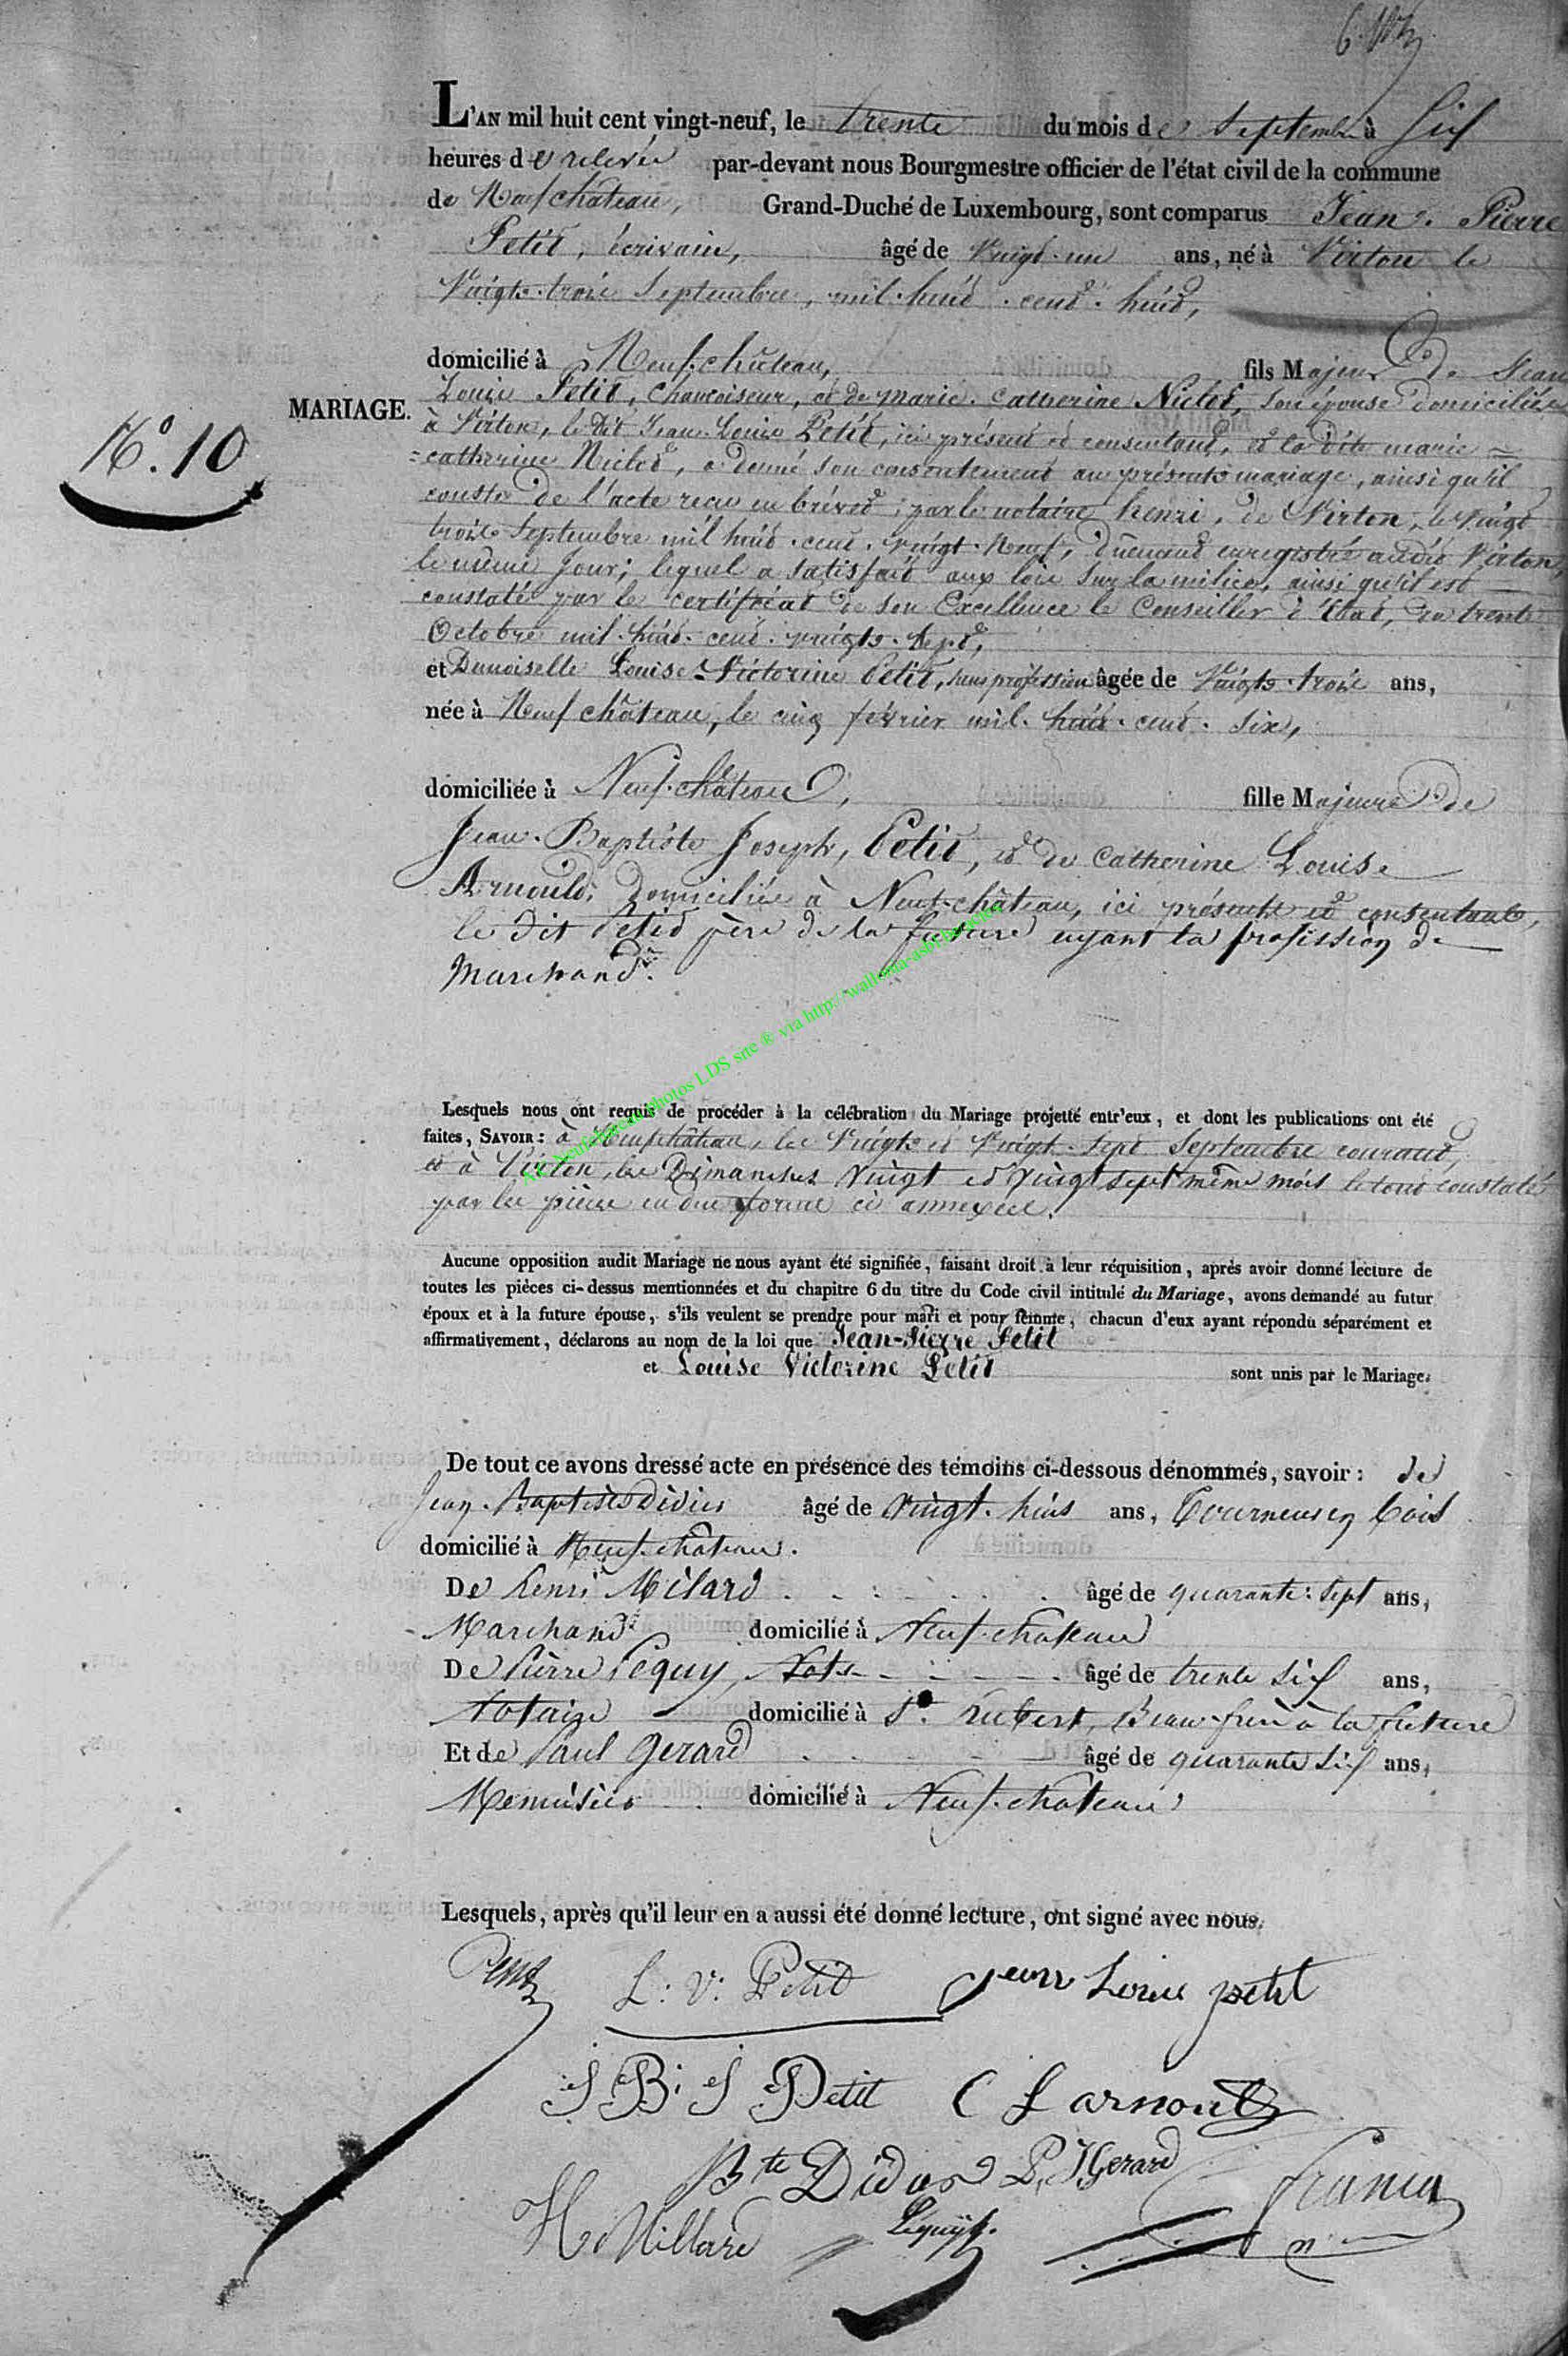 L'AN mil huit cent vingt-neuf, le trente du mois de Septembre à six
heures de relevée par-devant nous Bourgmestre officier de l'état civil de la commune
de Neufchateau, Grand-Duché de Luxembourg, sont comparus Jean-Pierre
Petit, écrivain, âgé de vingt-un ans, né à Virton le
vingt-trois Septembre, mil-huit-cent-huit,
domicilié à Neufchâteau, fils Majeur de Jean
MARIAGE.
N.° 10
Louis Petit, chamoiseur, et de marie-catherine Niclot, son épouse domiciliés
à Virton, le dit Jean-Louis Petit, ici présent et consentant, et la dite marie =
=catherine Niclot, a donné son consentement au présent mariage, ainsi qu'il
conste de l'acte recu en brévet, par le notaire henri, de Virton, le vingt
trois Septembre mil huit-cent-vingt-neuf, dûement enregistré audit Virton,
le même jour; lequel a satisfait aux lois sur la milice, ainsi qu'il est
constaté par le certificat de son Excellence le Conseiller d'Etat, du trente
Octobre mil-huit-cent-vingt-sept,
et Demoiselle Louise-Victorine Petit, sans profession âgée de vingt-trois ans,
née à Neufchâteau, le cinq février mil-huit-cent-six,
domiciliée à Neufchâteau, fille Majeure de
Jean-Baptiste Joseph, Petit, et de Catherine Louise
Arnould, domiciliés à Neufchâteau, ici présents et consentants,
le dit Petit père de la future ayant la profession de
Marchand.
Lesquels nous ont requis de procéder à la célébration du Mariage projetté entr'eux, et dont les publications ont été
faites, SAVOIR: à Neufchâteau, les vingt et vingt-sept Septembre courant,
et à Virton, les Dimanches vingt et vingt sept même mois le tout constaté
par les pièces en due forme ci annexées.
Aucune opposition audit Mariage ne nous ayant été signifiée, faisant droit à leur réquisition, après avoir donné lecture de
toutes les pièces ci-dessus mentionnées et du chapitre 6 du titre du Code civil intitulé du Mariage, avons demandé au futur
époux et à la future épouse, s'ils veulent se prendre pour mari et pour femme, chacun d'eux ayant répondu séparément et
affirmativement, déclarons au nom de la loi que Jean-Pierre Petit
et Louise Victorine Petit sont unis par le Mariage.
De tout ce avons dressé acte en présence des témoins ci-dessous dénommés, savoir: de
Jean-Baptiste Didier âgé de vingt-huit ans, Tourneur en bois
domicilié à Neufchâteau.
De henri Milard âgé de quarante-sept ans,
Marchand domicilié à Neufchateau
De Pierre Pequy, Nota âgé de trente six ans,
Notaire domicilié à St. hubert, Beau-frère à la future
Et de Paul Gerard âgé de quarante six ans,
Menuisier domicilié à Neufchateau
Lesquels, après qu'il leur en a aussi été donné lecture, ont signé avec nous.
Petit L: V: Petit jean Louis petit
J B; J Petit C L arnould
Bte Didier P. J Gerard
H Millard Pequy